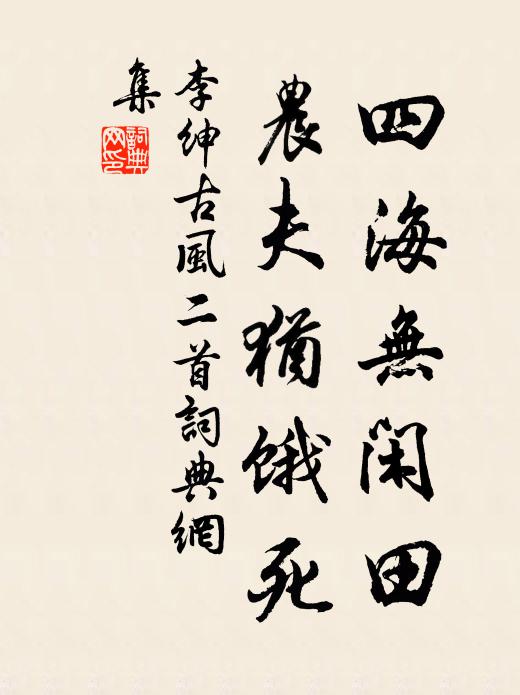 四海無閑田
農夫猶餓死
李紳古風二首詞典網
集
詞典網印